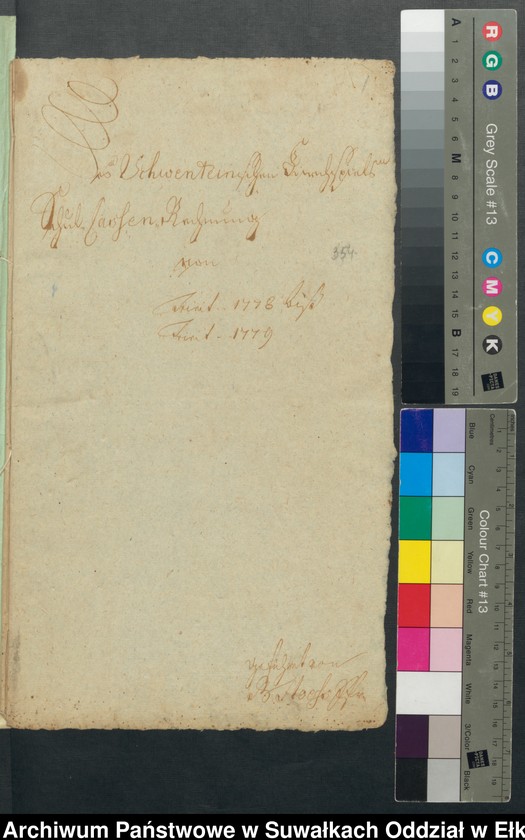 Des Schwenteinschen Kirchspiels
Schul Cassen Rechnung
von
354
Trinit. 1778 biß
Trinit. 1779
geführt von
A 1 2 3 4 5 6 M 8 9 10 11 12 13 14 15 B 17 18 19
R G B
Grey Scale #13
C M Y K
Colour Chart #13
Blue
Cyan
Green
Yellow
Red
Magenta
White
3/Color
Black
Centimetres
Inches
Archiwum Państwowe w Suwałkach Oddział w Ełk